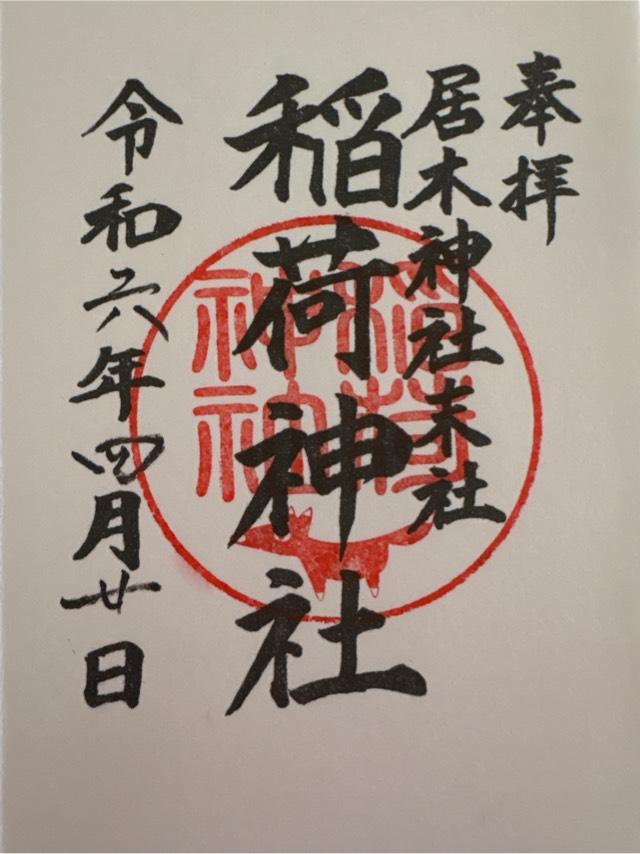 奉拝
居木神社末社
稲荷神社
令和六年四月廿日
稲荷
神社